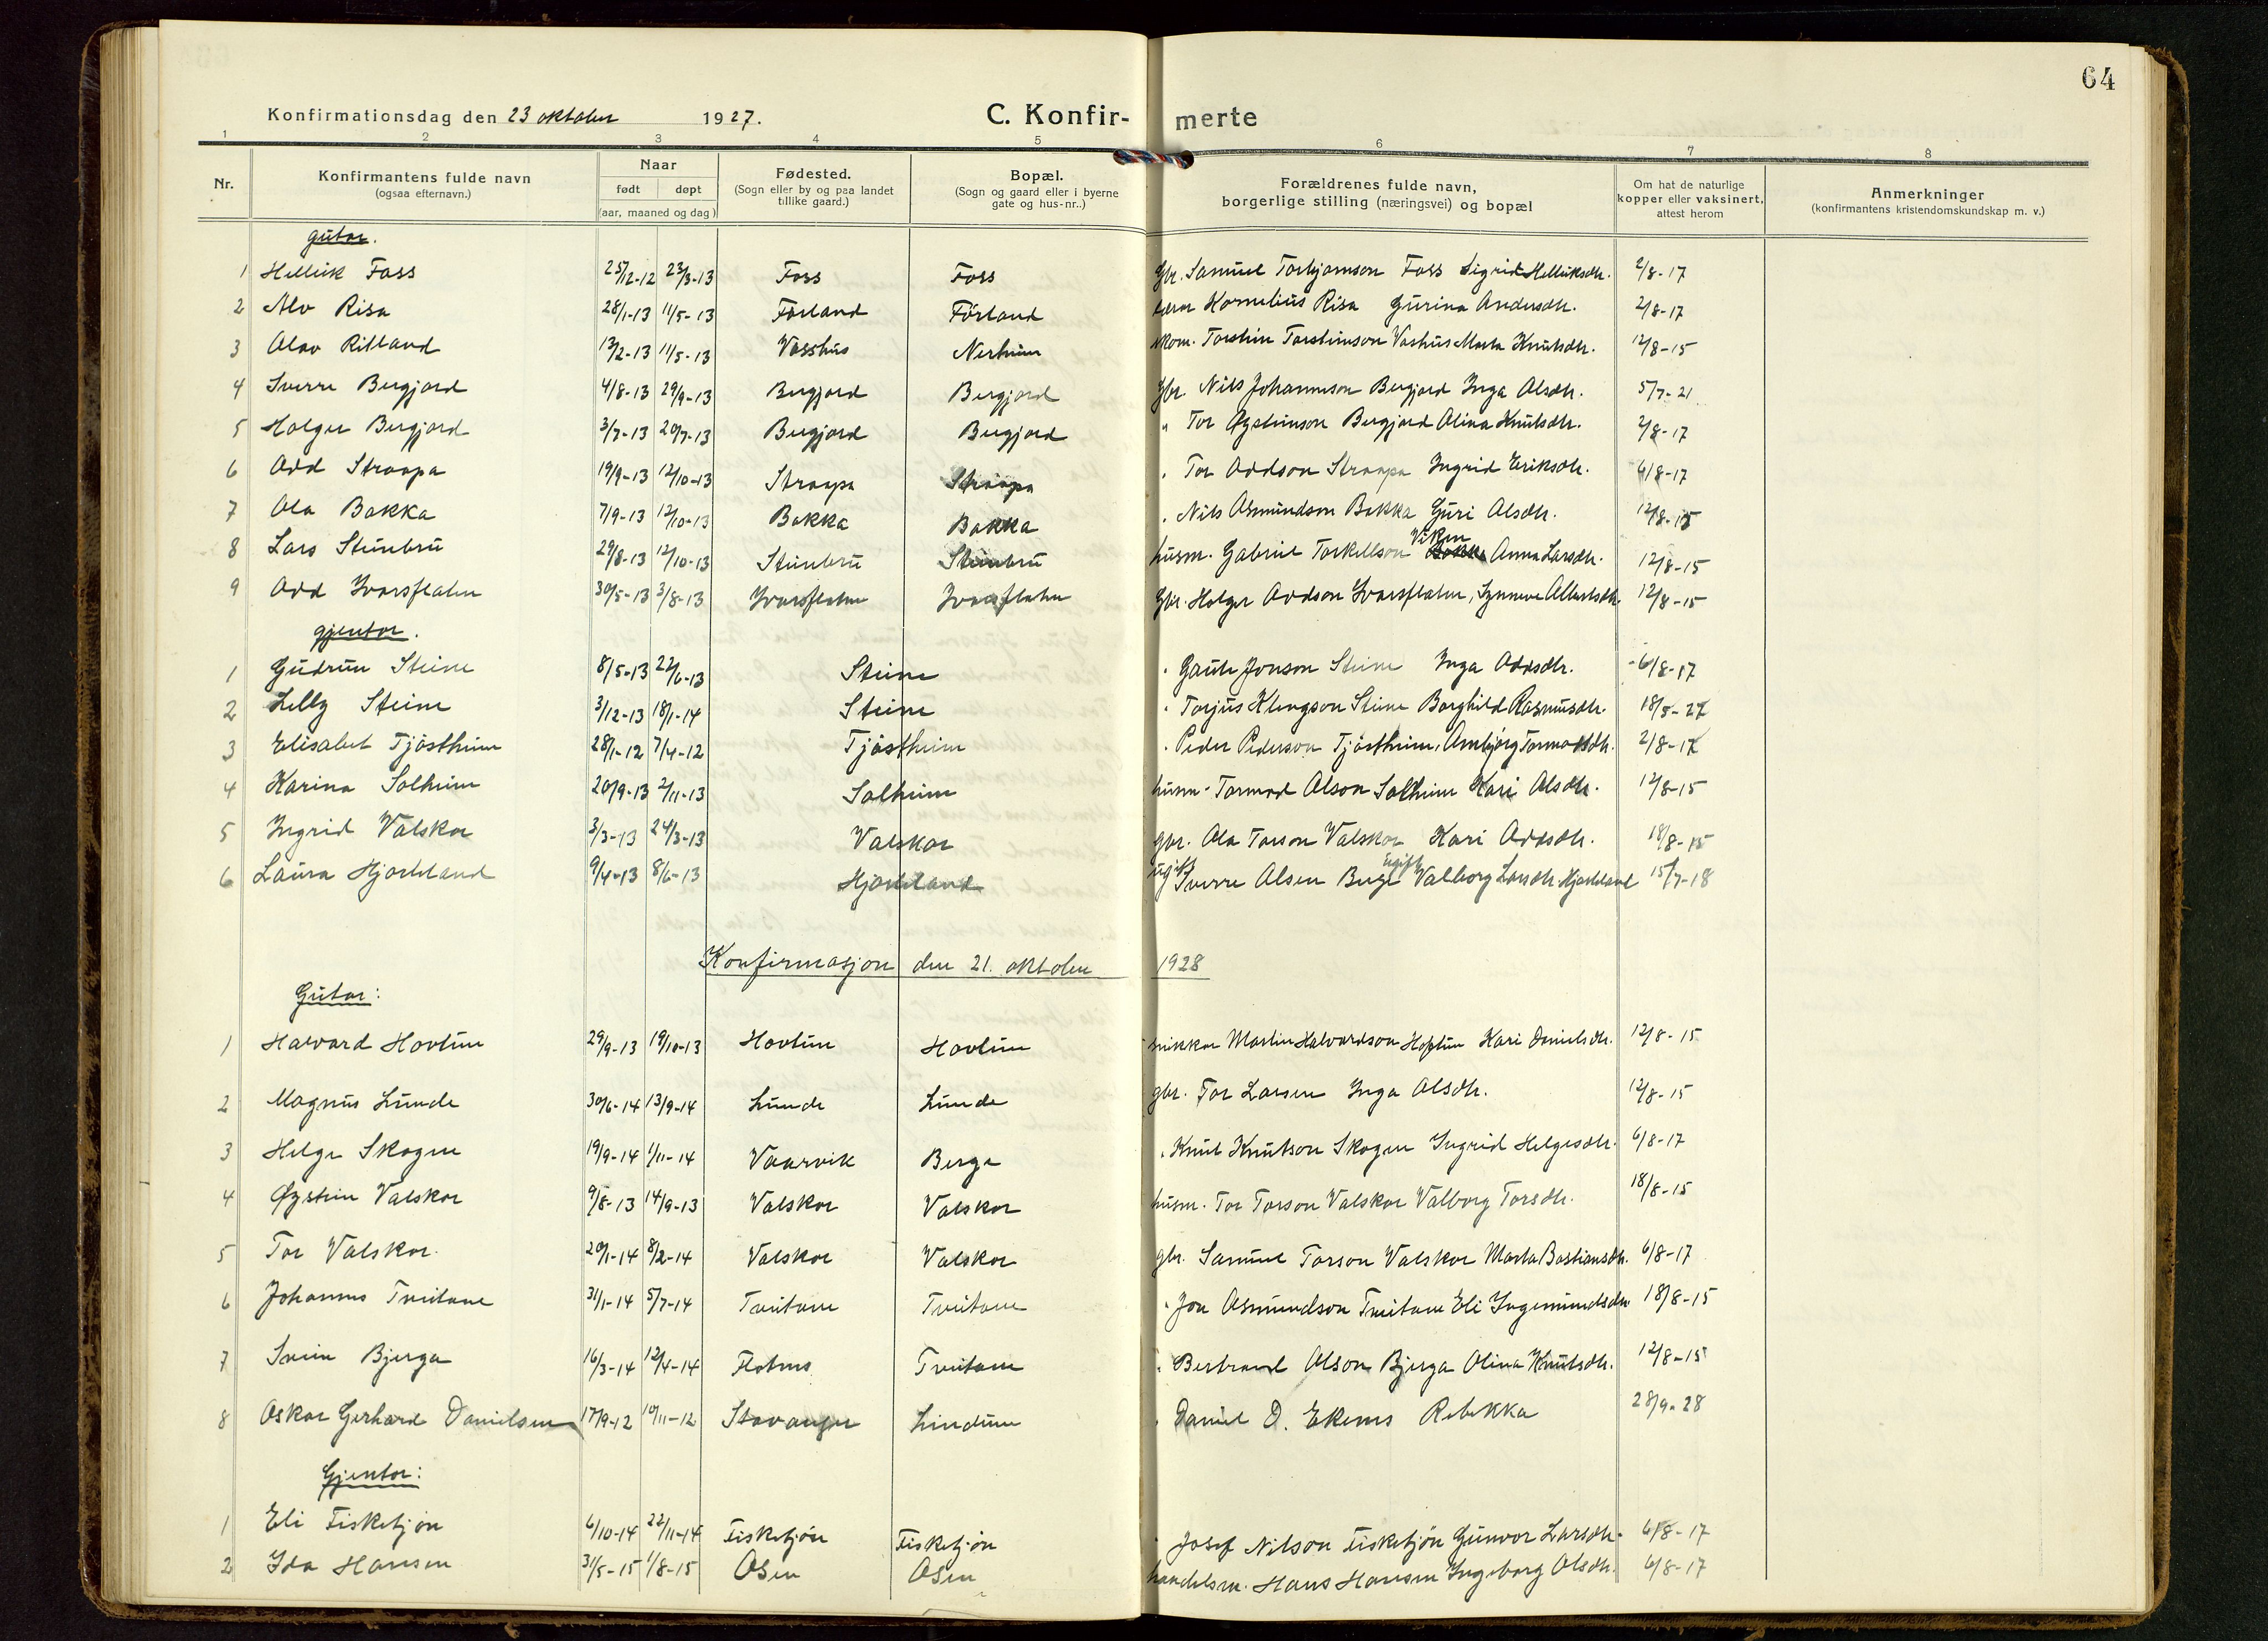 64
Konfirmationsdag den 23 oktober 1927. C. Konfir- merte
1 2 3 4 5 6 7 8
Nr. Konfirmantens fulde navn (ogsaa efternavn.) Naar født døpt (aar, maaned og dag) Fødested. (Sogn eller by og paa landet tillike gaard.) Bopæl. (Sogn og gaard eller i byerne gate og hus-nr..) Forældrenes fulde navn, borgerlige stilling (næringsvei) og bopæl Om hat de naturlige kopper eller vaksinert, attest herom Anmerkninger (konfirmantens kristendomskundskap m. v.)
gutar.
1 Helleik Foss 25/12-12 23/3-13 Foss Foss Gbr. Samuel Torbjørnson Foss Sigrid Helleiksdtr. 2/8-17
2 Alv Risa 28/1-13 11/5-13 Førland Førland Kornelius Risa Gurina Andersdtr. 2/8-17
3 Olav Rilland 13/2-13 11/5-13 Vasshus Nerheim skom. Torstein Torsteinson Vashus Marta Knutsdtr. 12/8-15
4 Sverre Bergjord 4/8-13 29/9-13 Bergjord Bergjord Gbr. Nils Johanneson Bergjord Inga Olsdtr. 5/7-21
5 Holger Bergjord 3/7-13 20/7-13 Bergjord Bergjord " Tor Øysteinson Bergjord Olina Knutsdtr. 2/8-17
6 Odd Straapa 19/9-13 12/10-13 Straapa Straapa " Tor Oddson Straapa Ingrid Eriksdtr. 6/8-17
7 Ola Bakka 7/9-13 12/10-13 Bakka Bakka " Nils Osmundson Bakka Guri Olsdtr. 12/8-15
8 Lars Steinbru 29/8-13 12/10-13 Steinbru Steinbru husm. Gabriel Torkellson Viken Anna Larsdtr. 12/8-15
9 Odd Ivarsflaten 30/5-13 3/8-13 Ivarsflaten Ivarsflaten Gbr. Holger Oddson Ivarsflaten, Synneve Albertsdtr. 12/8-15
gjentor.
1 Gudrun Steine 8/5-13 22/6-13 Steine " Gaute Jonson Steine Inga Oddsdtr. 6/8-17
2 Lilly Steine 3/12-13 18/1-14 Steine " Torjus Klengson Steine Borghild Rasmusdtr. 18/5-27
3 Elisabet Tjøstheim 28/1-12 7/4-12 Tjøstheim " Peder Pederson Tjøstheim, Ambjørg Tormodsdtr. 2/8-17
4 Karina Solheim 20/9-13 2/11-13 Solheim husm. Tormod Olson Solheim Kari Olsdtr. 12/8-15
5 Ingrid Valskor 3/3-13 24/3-13 Valskor gbr. Ola Torson Valskor Kari Oddsdtr. 18/8-15
6 Laura Hjorteland 9/4-13 8/6-13 Hjorteland ugift Sverre Olsen Berge ugift Valborg Larsdtr. Hjorteland 15/7-18
Konfirmasjon den 21. oktober 1928
Gutar:
1 Halvard Hovtun 29/9-13 19/10-13 Hovtun Hovtun snikkar Martin Halvardson Hovtun Kari Danielsdtr. 12/8-15
2 Magnus Lunde 30/6-14 13/9-14 Lunde Lunde gbr. Tor Larsen Inga Olsdtr. 12/8-15
3 Helge Skogen 19/9-14 1/11-14 Vaarvik Berge " Knut Knutson Skogen Ingrid Helgesdtr. 6/8-17
4 Øystein Valskor 9/8-13 14/9-13 Valskor Valskor husm. Tor Torson Valskor Valborg Torsdtr. 18/8-15
5 Tor Valskor 20/1-14 8/2-14 Valskor Valskor gbr. Samuel Torson Valskor Marta Bastiansdtr. 6/8-17
6 Johannes Tveitane 31/1-14 5/7-14 Tveitane Tveitane " Jon Osmundson Tveitane Eli Ingemundsdtr 18/8-15
7 Svein Bjerga 16/3-14 12/4-14 Tveitane " Bertrand Olson Bjerga Olina Knutsdtr. 12/8-15
8 Oskar Gerhard Danielsen 17/9-12 10/11-12 Stavanger Lindum " Daniel D. Ekenes Rebekka 28/9-28
Gjentor:
1 Eli Fisketjøn 6/10-14 22/11-14 Fisketjøn Fisketjøn " Josef Nilson Fisketjøn Gunvor Larsdtr. 6/8-17
2 Ida Hansen 31/5-15 1/8-15 Osen Osen handelsm. Hans Hansen Ingeborg Olsdtr. 6/8-17